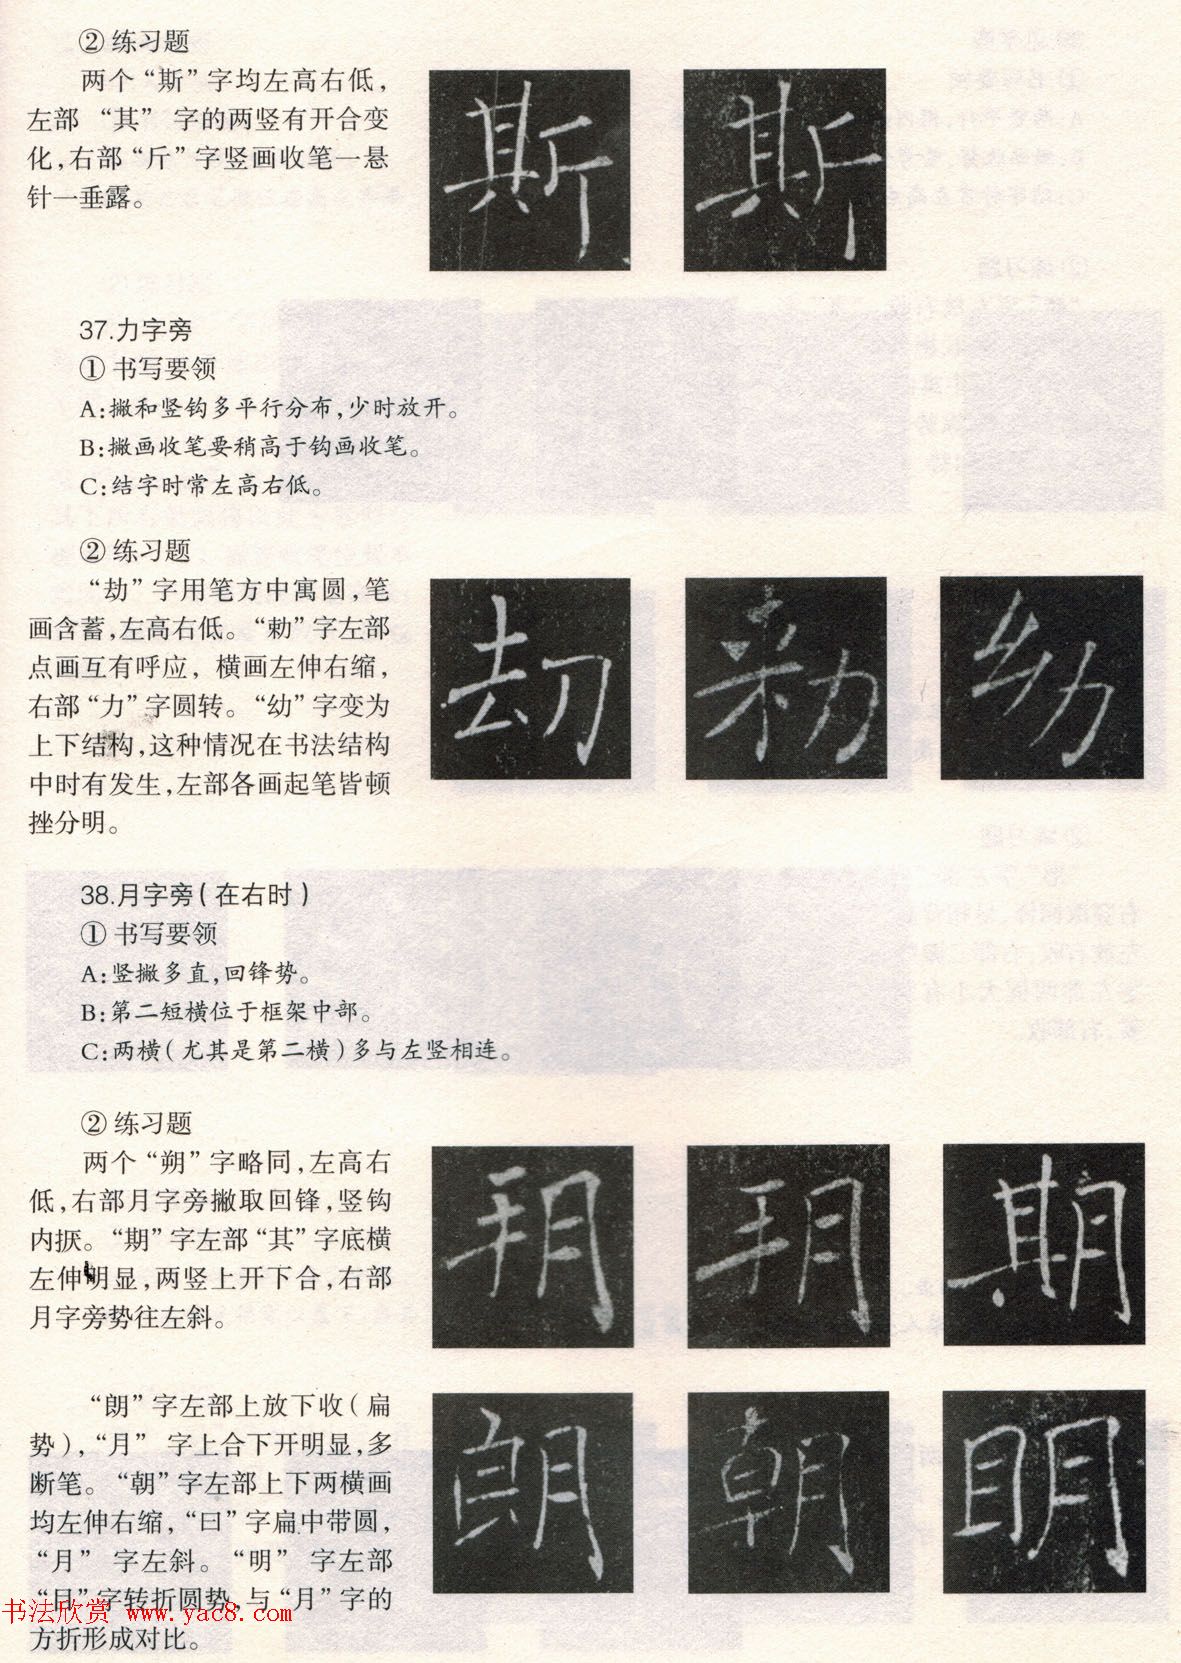 ② 练习题
两个“斯”字均左高右低，
左部 “其” 字的两竖有开合变
化，右部“斤”字竖画收笔一悬
针一垂露。
斯 斯
37.力字旁
① 书写要领
A:撇和竖钩多平行分布，少时放开。
B:撇画收笔要稍高于钩画收笔。
C:结字时常左高右低。
② 练习题
“劫”字用笔方中寓圆，笔
画含蓄，左高右低。“勑”字左部
点画互有呼应，横画左伸右缩，
右部“力”字圆转。“幼”字变为
上下结构，这种情况在书法结构
中时有发生，左部各画起笔皆顿
挫分明。
劫 勑 幼
38.月字旁(在右时)
① 书写要领
A:竖撇多直，回锋势。
B:第二短横位于框架中部。
C:两横(尤其是第二横)多与左竖相连。
② 练习题
两个“朔”字略同，左高右
低，右部月字旁撇取回锋，竖钩
内擫。“期”字左部“其”字底横
左伸明显，两竖上开下合，右部
月字旁势往左斜。
朔 朔 期
“朗”字左部上放下收(扁
势)，“月” 字上合下开明显，多
断笔。“朝”字左部上下两横画
均左伸右缩，“曰”字扁中带圆，
“月” 字左斜。“明” 字左部
“目”字转折圆势，与“月”字的
方折形成对比。
朗 朝 明
书法欣赏 www.yac8.com